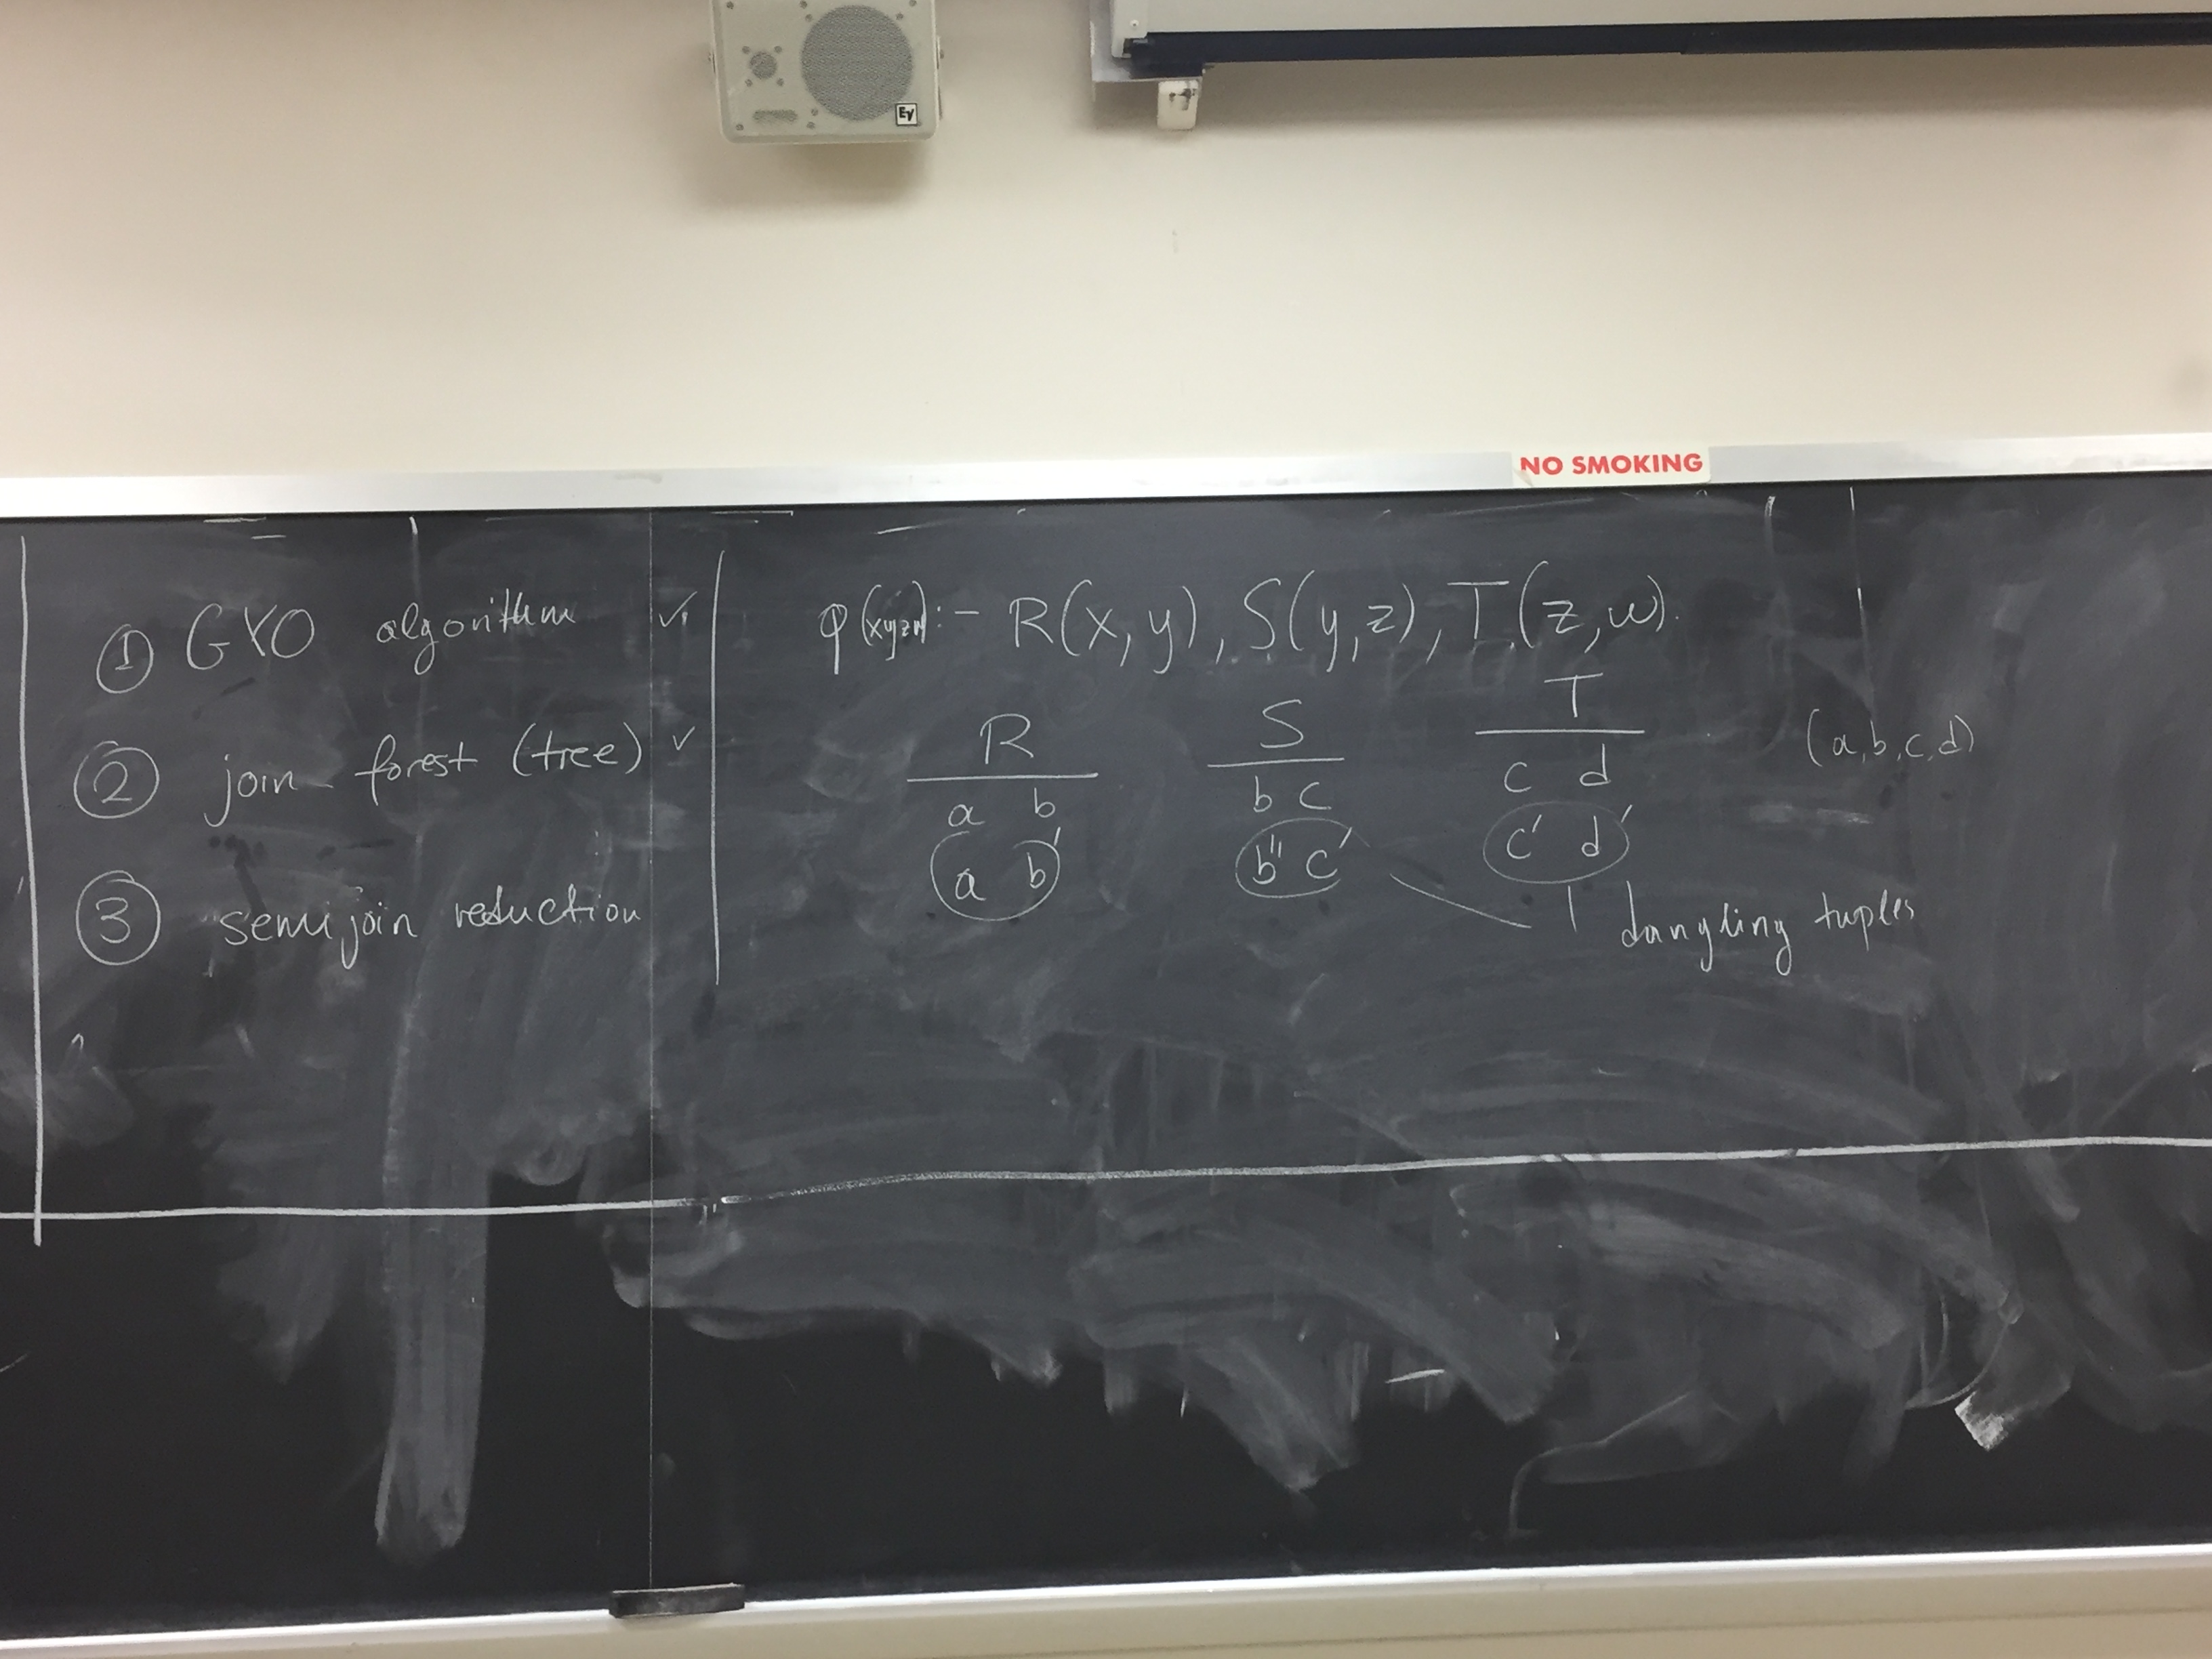 EV
NO SMOKING
① GYO algorithm ✓
② join forest (tree) ✓
③ semijoin reduction
q(xyzw) :- R(x,y), S(y,z), T(z,w).
R
a b
a b'
S
b c
b'' c'
T
c d
c' d'
(a,b,c,d)
dangling tuples